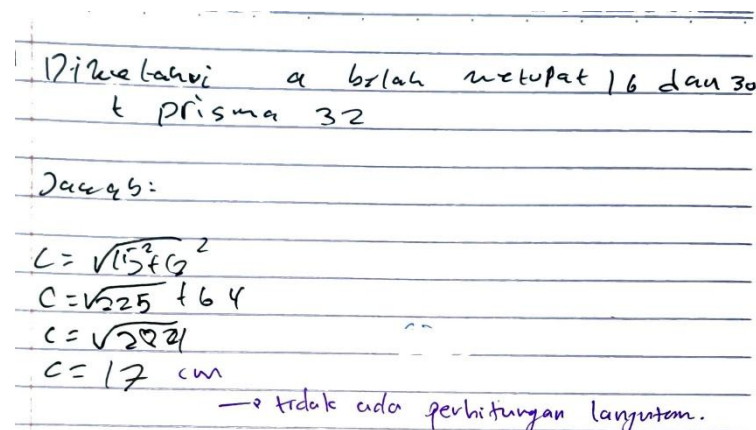 Diketahui a belah ketupat 16 dan 30
t prisma 32
Jawab:
C = √15²+8²
C = √225 + 64
C = √289
C = 17 cm
→ tidak ada perhitungan lanjutan.